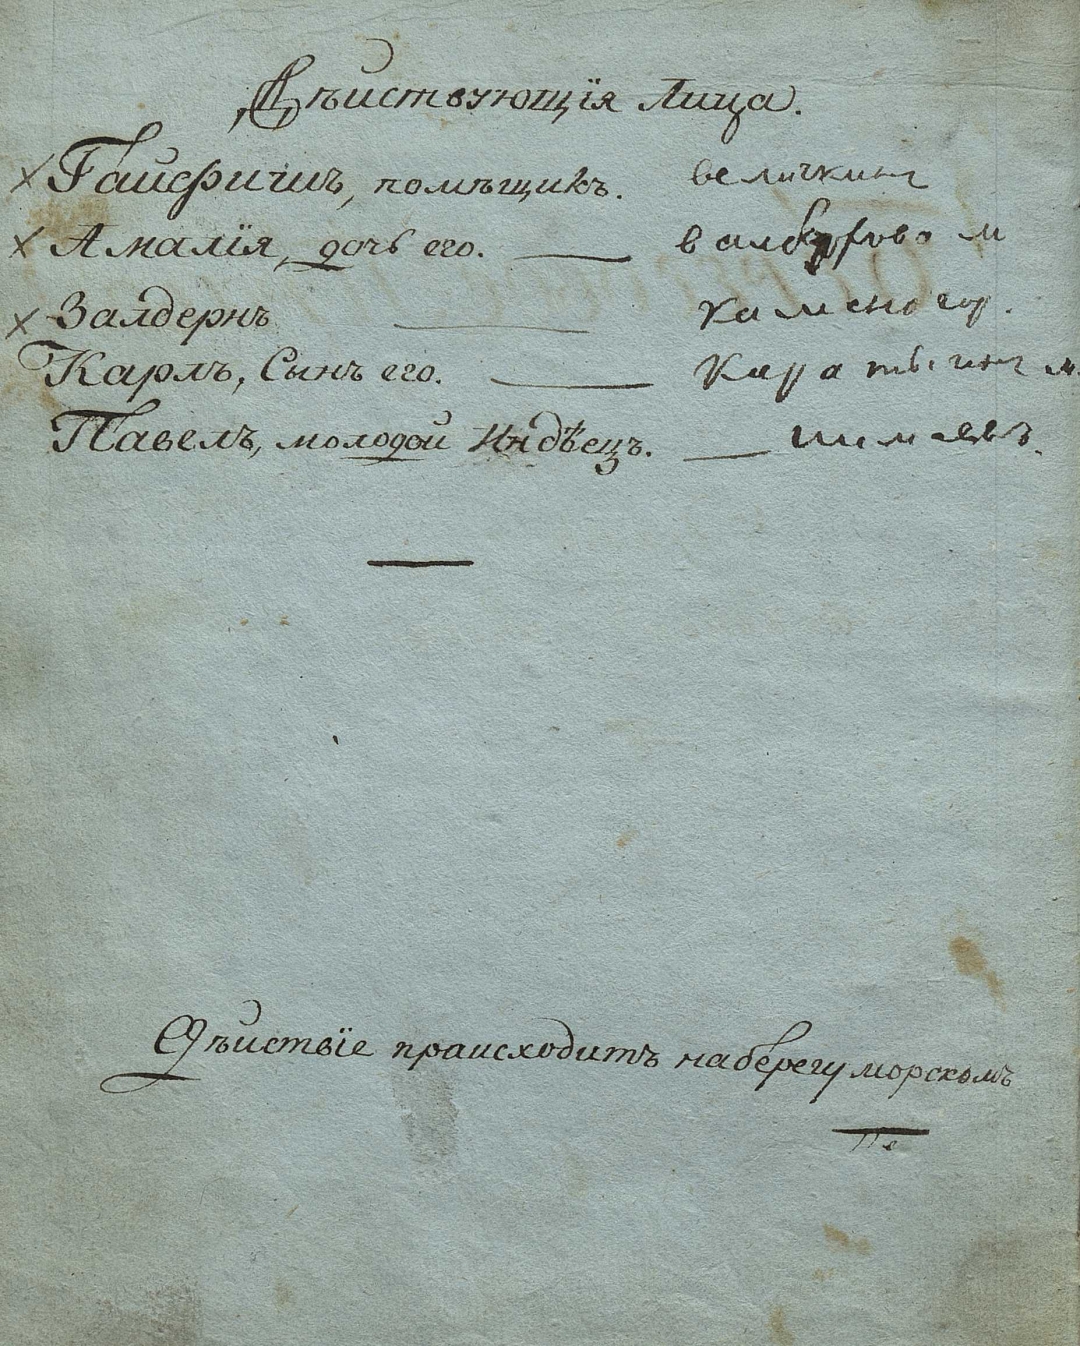 Дѣиствующїя Лица.
Гайфичъ, помѣщикъ. величкинъ
Амалїя, дочь его. валберхова м
Залдернъ Каменогор.
Карлъ, Сынъ его. Каратыгинъ м.
Павелъ, молодой Индѣецъ. шимаевъ.
Дѣиствїе праисходитъ на берегу морскомъ